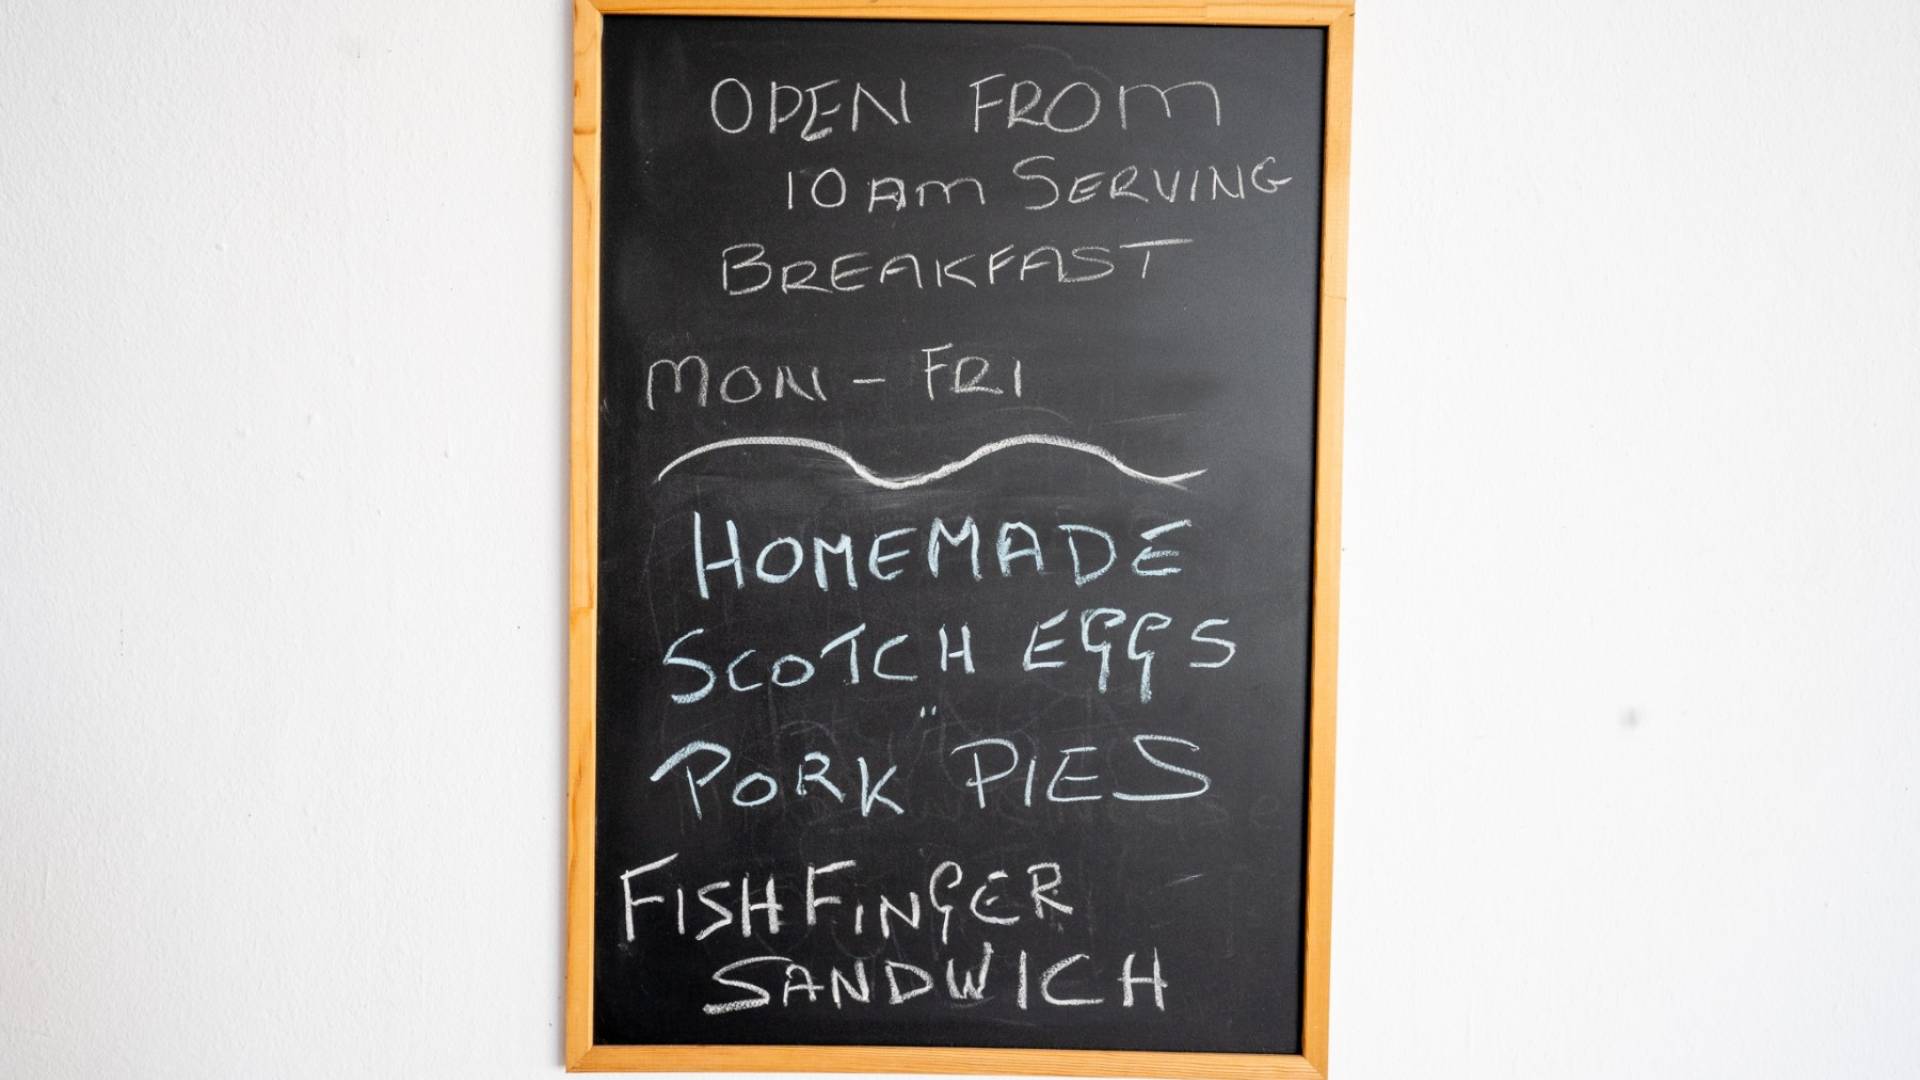 OPEN FROM
10 AM SERVING
BREAKFAST
MON - FRI
HOMEMADE
SCOTCH EGGS
"
PORK PIES
FISH FINGER
SANDWICH